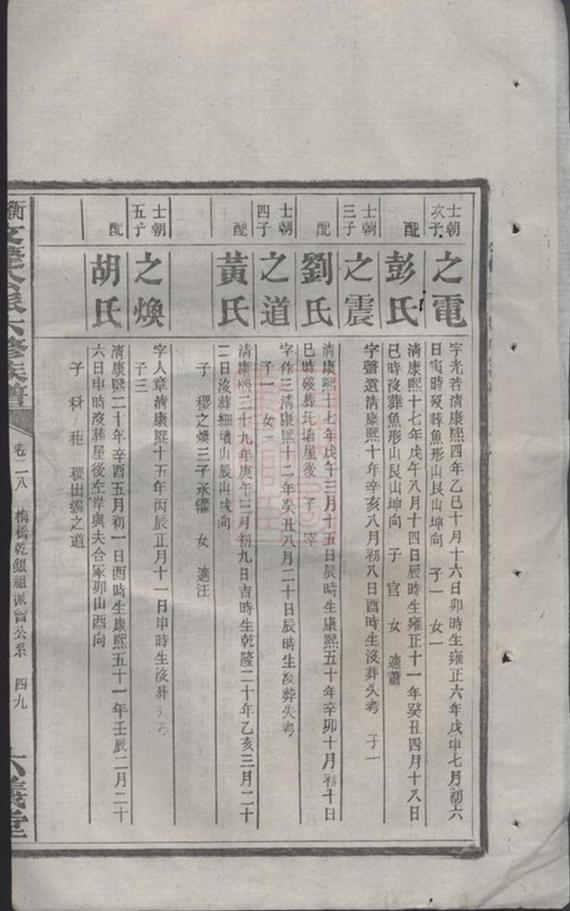 士朝次子
之電
字光若清康熙四年乙巳十月十六日卯時生雍正六年戊申七月初六
日寅時歿葬魚形山艮山坤向 子一 女一
配
彭氏
清康熙十七年戊午八月十四日辰時生雍正十一年癸丑四月十八日
巳時沒葬魚形山艮山坤向 子 官 女 適蕭
士朝三子
之震
字聲遠清康熙十年辛亥八月初八日酉時生沒葬失考 子一
配
劉氏
清康熙十七年戊午三月十五日辰時生康熙五十年辛卯十月初十日
巳時歿葬 屋後 子 宰
士朝四子
之道
字作三清康熙十二年癸丑八月二十日辰時生沒葬失考
子一 女
配
黃氏
清康熙三十九年庚午三月初九日吉時生乾隆二十年乙亥三月二十
二日沒葬細 山辰山戌向
子 稷之煥三子承繼 女 適汪
士朝五子
之煥
字人章清康熙十五年丙辰正月十一日申時生沒葬失考
子三
配
胡氏
清康熙二十年辛酉五月初一日酉時生康熙五十一年壬辰二月二十
六日申時沒葬屋後左岸與夫合冢卯山酉向
子 科 秬 稷出繼之道
六修族譜
卷二八 梅橋乾銀祖派 公系 四九
六義堂